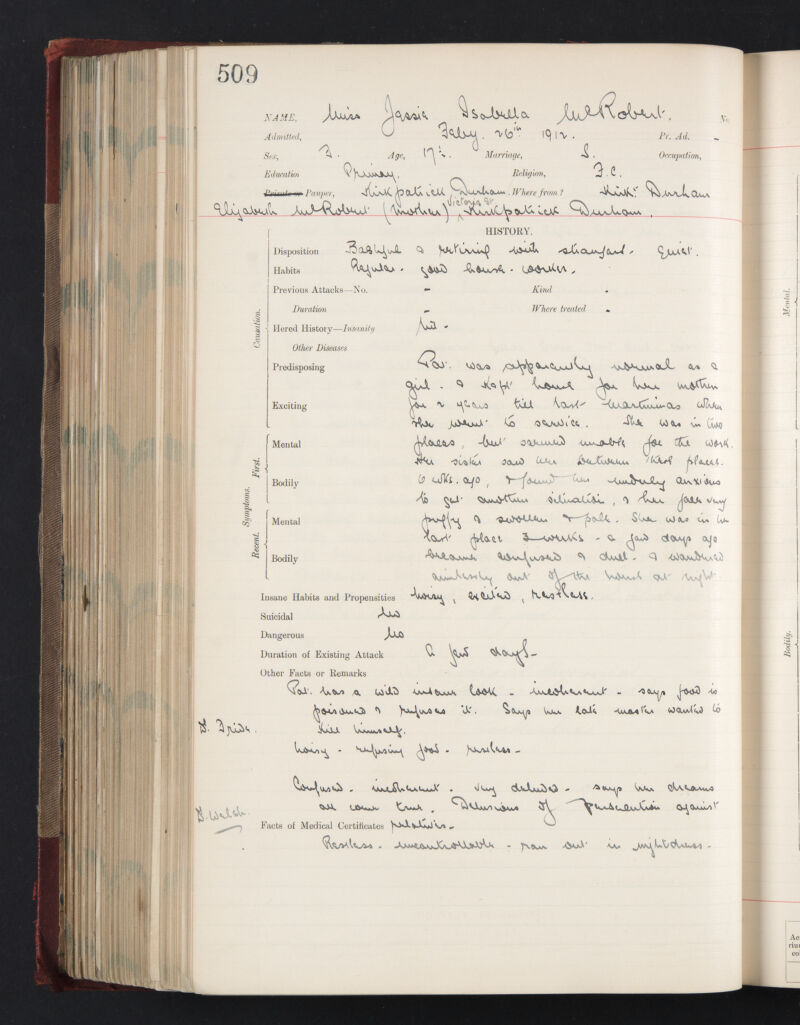 509
NAME, Miss Jessie Isabella McRobert. No
Admitted, Feby. 26th 1912. Pr. Ad. -
Sex, F. Age, 17½. Marriage, S. Occupation,
Education Primary. Religion, F.C.
Private or Pauper, Kirkpatrick Durham. Where from? Kirk: Durham
Elizabeth McRobert (Mother) Victoria St Kirkpatrick Durham.
HISTORY.
Disposition Bashful & retiring with strangers. Quiet.
Habits Regular. good house-worker.
Previous Attacks—No. - Kind .
Duration - Where treated .
Hered History—Insanity No -
Other Diseases
Predisposing Pat. was apparently normal as a
girl. & kept house for her mother
Exciting for 2 years till last Martinmas when
she went to service. She was in two
Mental places, but seemed unable for the work.
Her sister saw her between these places.
Bodily 6 wks. ago, & found her unduly anxious
to get another situation, & her face very
Mental puffy & swollen & pale. She was in her
last place 3 weeks - a few days ago
Bodily became confused & dull. & wandered
aimlessly out of the house at night.
Causation.
Symptoms.
First.
Recent.
Insane Habits and Propensities Noisy, excited, restless.
Suicidal No
Dangerous No
Duration of Existing Attack A few days -
Other Facts or Remarks
Pat. has a wild insane look - incoherent - says food is
poisoned & refuses it. Says her late master wanted to
D. Fride. kill himself.
Noisy - refusing food - restless -
Confused - incoherent - very deluded - says her dreams
all come true. Delusions of persecution against
D. Walsh.
Facts of Medical Certificates relatives -
Restless - uncontrollable - ran out in nightdress -
Mental.
Bodily.